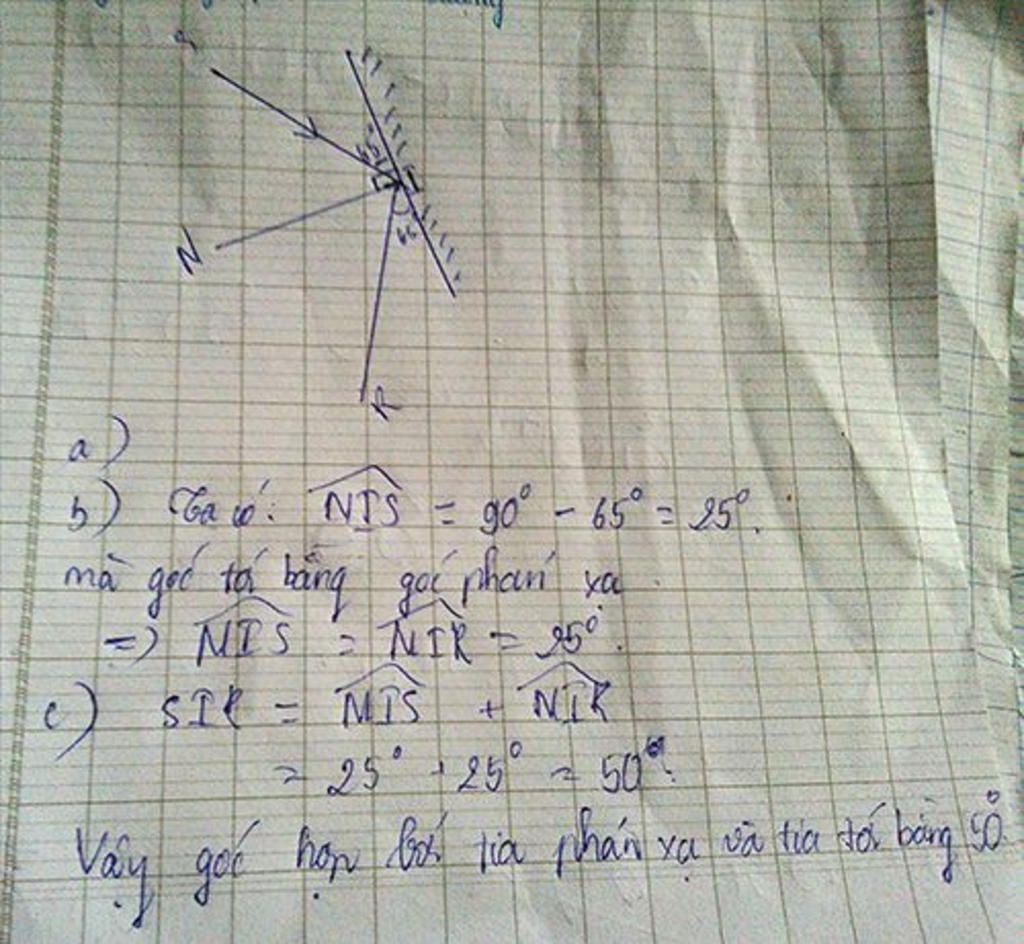 S
I
N
R
a)
b) Ta có: NIS = 90° - 65° = 25°.
mà góc tới bằng góc phản xạ
=) NIS = NIR = 25°.
c) SIR = NIS + NIR
= 25° + 25° = 50°.
Vậy góc hợp bởi tia phản xạ và tia tới bằng 50°